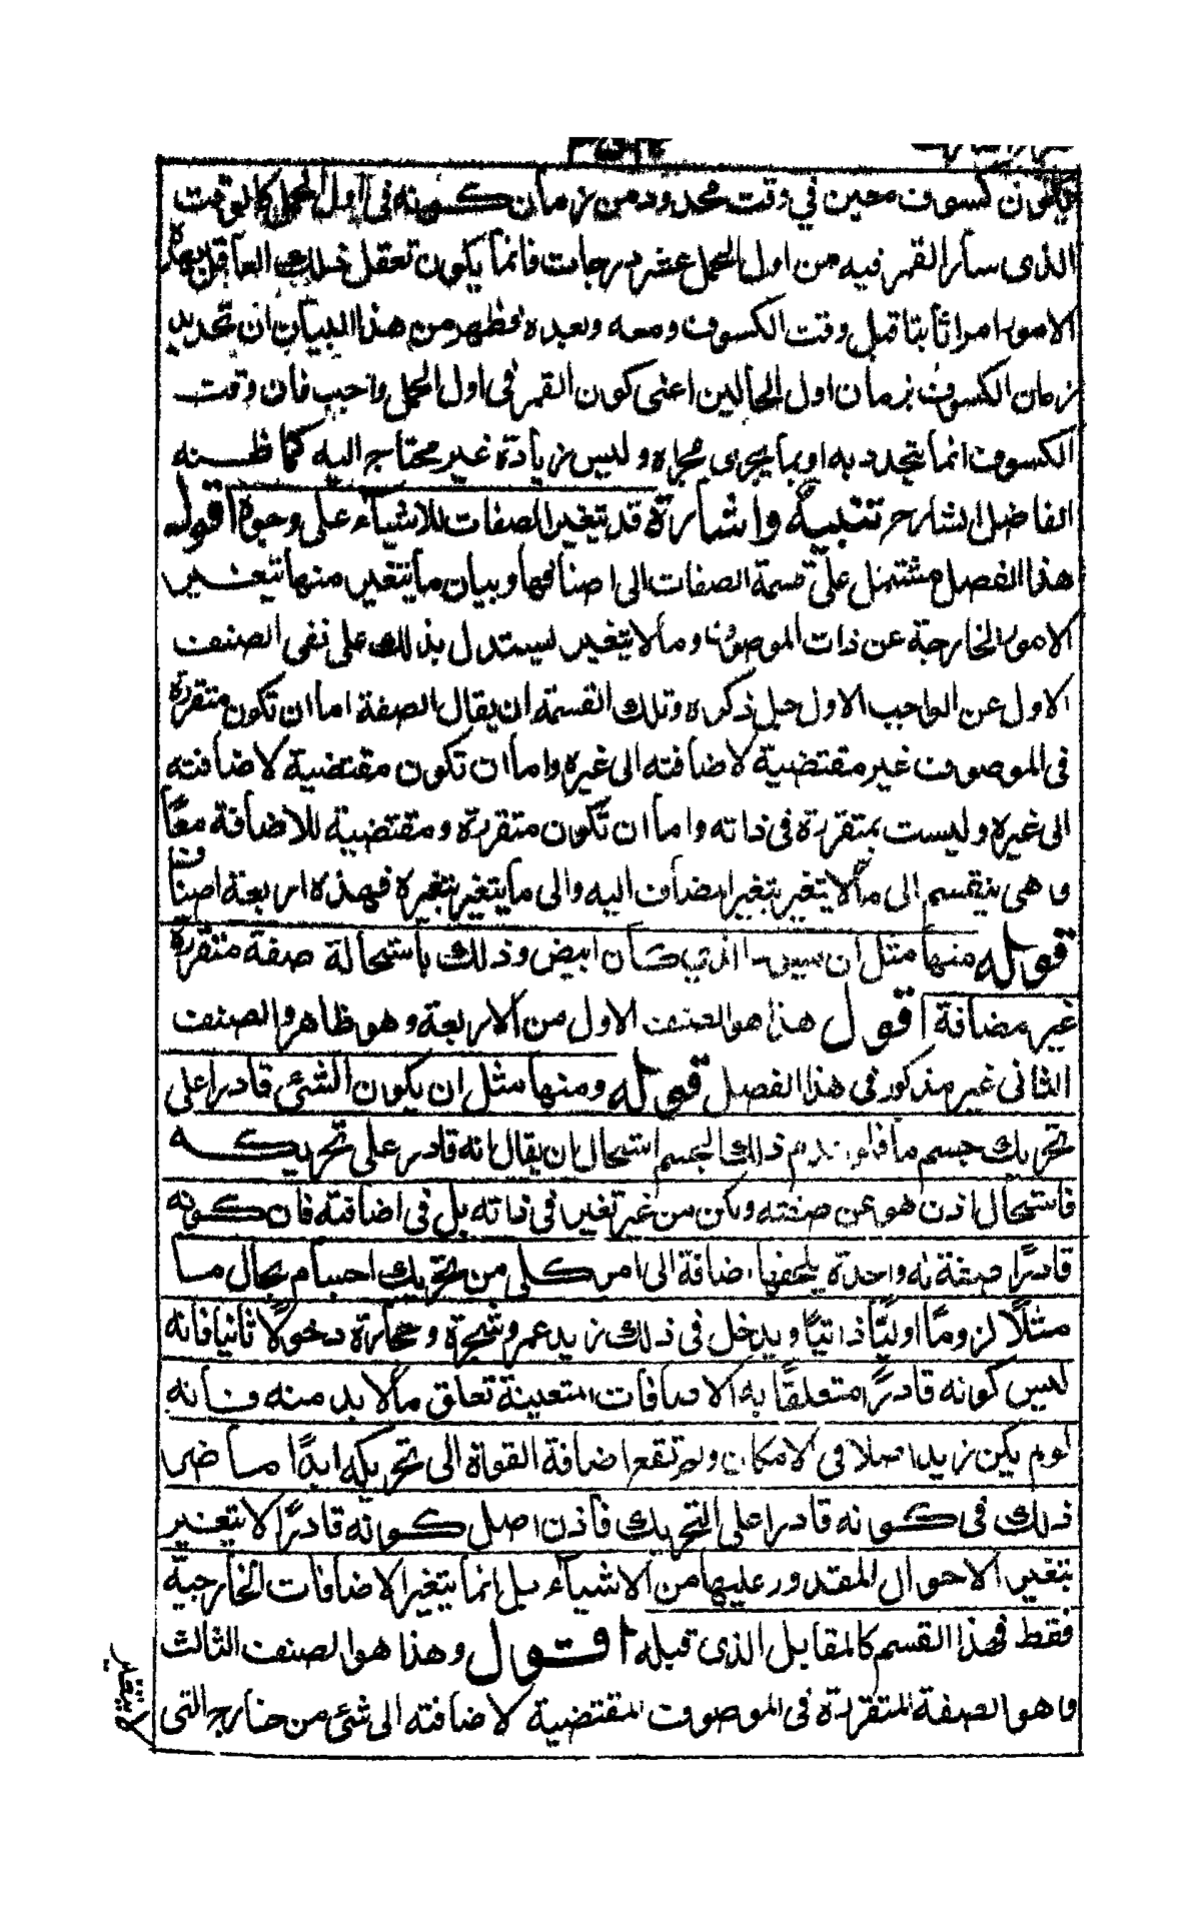 يكون كسوف معين في وقت محدود من زمان كونه في اول الحمل كالوقت
الذى سار القمر فيه من اول الحمل عشر درجات فانما يكون تعقل ذلك العاقل بهذه
الامور امرا ثابتا قبل وقت الكسوف ومعه وبعده فظهر من هذا البيان ان تحديد
زمان الكسوف بزمان اول الحالين اعنى كون القمر فى اول الحمل واجب فان وقت
الكسوف انما يتحدد به او بما يجرى مجراه وليس زيادة غير محتاج اليه كما ظنه
الفاضل الشارح تنبيه واشارة قد يتغير الصفات للاشياء على وجوه اقول
هذا الفصل مشتمل على قسمة الصفات الى اصنافها وبيان ما يتغير منها بتغير
الامور الخارجة عن ذات الموصوف وما لا يتغير ليستدل بذلك على نفى الصنف
الاول عن الواجب الاول جل ذكره وتلك القسمة ان يقال الصفة اما ان تكون متقررة
فى الموصوف غير مقتضية لاضافته الى غيره واما ان تكون مقتضية لاضافته
الى غيره وليست بمتقررة فى ذاته واما ان تكون متقررة ومقتضية للاضافة معًا
وهى ينقسم الى ما لا يتغير بتغير المضاف اليه والى ما يتغير بتغيره فهذه اربعة اصناف
قوله منها مثل ان يسود الذي كان ابيض وذلك باستحالة صفة متقررة
غير مضافة اقول هذا هو الصنف الاول من الاربعة وهو ظاهر والصنف
الثانى غير مذكور فى هذا الفصل قوله ومنها مثل ان يكون الشئ قادرا على
تحريك جسم ما فلو عدم ذلك الجسم استحال ان يقال انه قادر على تحريكه
فاستحال اذن هو عن صفته ولكن من غير تغير فى ذاته بل فى اضافته فان كونه
قادرًا صفة له واحدة يلحقها اضافة الى امر كلى من تحريك اجسام بحال ما
مثلًا لزومًا اوليًّا ذاتيًا ويدخل فى ذلك زيد عمرو شجرة وحجارة دخولًا ثانيا فانه
ليس كونه قادرًا متعلقًا به الاضافات المتعينة تعلق ما لا بد منه فانه
لو لم يكن زيد اصلا فى الامكان ولم تقع اضافة القوة الى تحريكه ابدًا ما ضر
ذلك فى كونه قادرا على التحريك فاذن اصل كونه قادرًا لا يتغير
بتغير الاحوال المقدور عليها من الاشياء بل انما يتغير الاضافات الخارجية
فقط فهذا القسم كالمقابل الذى قبله اقول وهذا هو الصنف الثالث
وهو الصفة المتقررة فى الموصوف المقتضية لاضافته الى شئ من خارج التى
لا يتغير